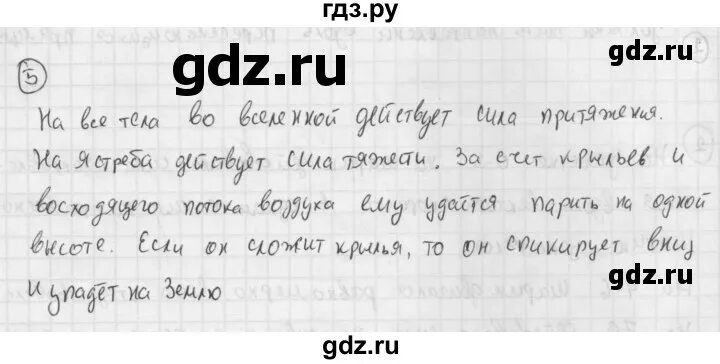 гдз.ру
gdz.ru
gdz.ru
5
На все тела во вселенной действует сила притяжения.
На ястреба действует сила тяжести. За счет крыльев и
восходящего потока воздуха ему удаётся парить на одной
высоте. Если он сложит крылья, то он спикирует вниз
и упадёт на Землю
gdz.ru
gdz.ru
gdz.ru